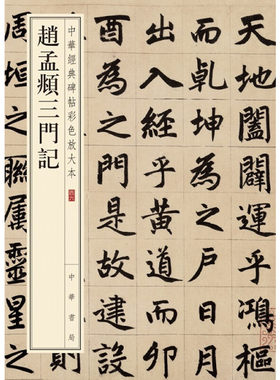 天地闔闢運乎鴻樞
而乾坤為之戶日月
出入經乎黃道而卯
酉為之門是故建設
周垣之聯屬靈星之
中華經典碑帖彩色放大本
趙孟頫三門記
中華書局